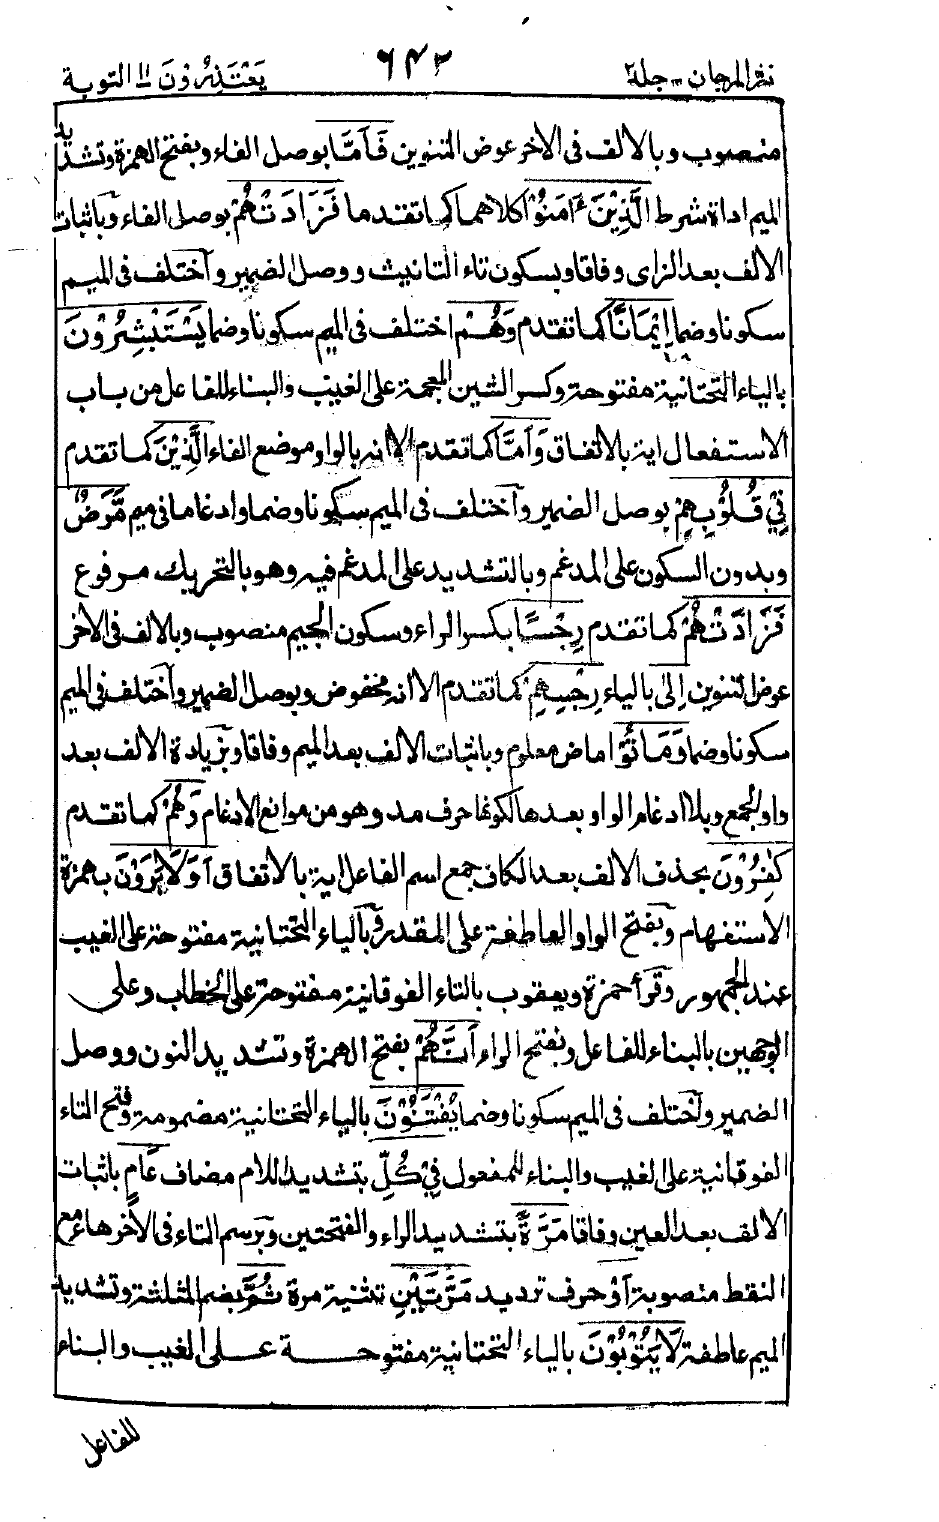 نثر المرجان - جلد٢ ٦٤٢ يَعْتَذِرُوْنَ ١١ التوبة
منصوب وبالالف فى الآخر عوض التنوين فَاَمَّا بوصل الفاء وبفتح الهمزة وتشديد
الميم اداة شرط الَّذِيْنَ ءَامَنُوْا كلاهما كما تقدما فَزَادَتْهُمْ بوصل الفاء وباثبات
الالف بعد الزاى وفاقا وبسكون تاء التانيث ووصل الضمير واختلف فى الميم
سكونا وضما اِيْمَانًا كما تقدم وَهُمْ اختلف فى الميم سكونا وضما يَسْتَبْشِرُوْنَ
بالياء التحتانية مفتوحة وكسر الشين المعجمة على الغيب والبناء للفاعل من باب
الاستفعال اية بالاتفاق وَاَمَّا كما تقدم الا انه بالواو موضع الفاء الَّذِيْنَ كما تقدم
فِيْ قُلُوْبِهِمْ بوصل الضمير واختلف فى الميم سكونا وضما وادغاما فى ميم مَّرَضٌ
وبدون السكون على المدغم وبالتشديد على المدغم فيه وهو بالتحريك مرفوع
فَزَادَتْهُمْ كما تقدم رِجْسًا بكسر الراء وسكون الجيم منصوب وبالالف فى الآخر
عوض التنوين اِلٰى بالياء رِجْسِهِمْ كما تقدم الا انه مخفوض وبوصل الضمير واختلف فى الميم
سكونا وضما وَمَاتُوْا ماض معلوم وباثبات الالف بعد الميم وفاقا وبزيادة الالف بعد
واو الجمع وبلا ادغام الواو بعدها لكونها حرف مد وهو من موانع الادغام وَهُمْ كما تقدم
كٰفِرُوْنَ بحذف الالف بعد الكاف جمع اسم الفاعل اية بالاتفاق اَوَلَا يَرَوْنَ بهمزة
الاستفهام وبفتح الواو العاطفة على المقدر وبالياء التحتانية مفتوحة على الغيب
عند الجمهور وقرأ حمزة ويعقوب بالتاء الفوقانية مفتوحة على الخطاب وعلى
الوجهين بالبناء للفاعل وبفتح الراء اَنَّهُمْ بفتح الهمزة وتشديد النون ووصل
الضمير واختلف فى الميم سكونا وضما يُفْتَنُوْنَ بالياء التحتانية مضمومة وفتح التاء
الفوقانية على الغيب والبناء للمفعول فِيْ كُلِّ بتشديد اللام مضاف عَامٍ باثبات
الالف بعد العين وفاقا مَرَّةً بتشديد الراء والفتحتين وبرسم التاء فى الآخر هاء مع
النقط منصوبة اَوْ حرف ترديد مَرَّتَيْنِ تثنية مرة ثُمَّ بضم المثلثة وتشديد
الميم عاطفة لَا يَتُوْبُوْنَ بالياء التحتانية مفتوحة على الغيب والبناء
للفاعل